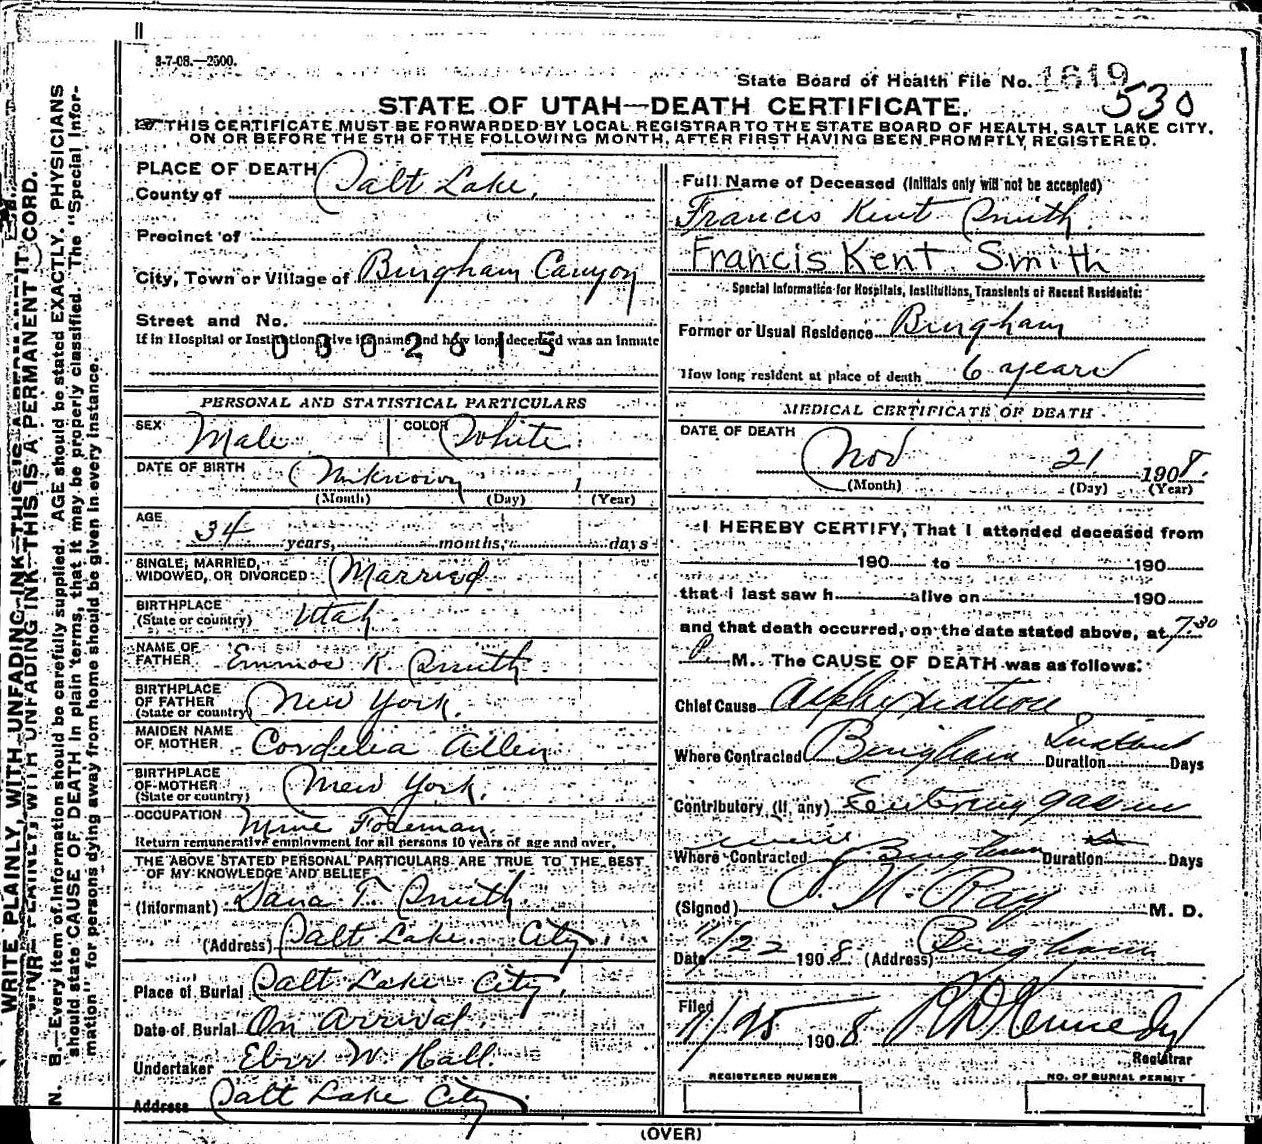 3-7-08.—2500.
State Board of Health File No. 1619
530
STATE OF UTAH—DEATH CERTIFICATE.
THIS CERTIFICATE MUST BE FORWARDED BY LOCAL REGISTRAR TO THE STATE BOARD OF HEALTH, SALT LAKE CITY,
ON OR BEFORE THE 5TH OF THE FOLLOWING MONTH, AFTER FIRST HAVING BEEN PROMPTLY REGISTERED.
PLACE OF DEATH
County of Salt Lake.
Precinct of
City, Town or Village of Bingham Canyon
Street and No.
If in Hospital or Institution give its name and how long deceased was an inmate
0802615
PERSONAL AND STATISTICAL PARTICULARS
SEX Male COLOR White
DATE OF BIRTH Unknown 1
(Month) (Day) (Year)
AGE 34 years, months, days
SINGLE, MARRIED,
WIDOWED, OR DIVORCED Married
BIRTHPLACE
(State or country) Utah.
NAME OF
FATHER K. Smith
BIRTHPLACE
OF FATHER
(State or country) New York.
MAIDEN NAME
OF MOTHER Cordelia Allen
BIRTHPLACE
OF MOTHER
(State or country) New York.
OCCUPATION Mine Foreman.
Return remunerative employment for all persons 10 years of age and over.
THE ABOVE STATED PERSONAL PARTICULARS ARE TRUE TO THE BEST
OF MY KNOWLEDGE AND BELIEF
(Informant) Dana T. Smith.
(Address) Salt Lake City.
Place of Burial Salt Lake City.
Date of Burial On Arrival.
Undertaker Eber W. Hall.
Address Salt Lake City
Full Name of Deceased (Initials only will not be accepted)
Francis Kent Smith.
Francis Kent Smith
Special Information for Hospitals, Institutions, Transients or Recent Residents:
Former or Usual Residence Bingham
How long resident at place of death 6 years
MEDICAL CERTIFICATE OF DEATH
DATE OF DEATH
Nov 21 1908.
(Month) (Day) (Year)
I HEREBY CERTIFY, That I attended deceased from
190 to 190
that I last saw h alive on 190
and that death occurred, on the date stated above, at 7.30
P. M. The CAUSE OF DEATH was as follows:
Chief Cause Asphyxiation
Where Contracted Bingham Duration Instant Days
Contributory (if any) Entering gas in
Where Contracted Bingham Duration Days
(Signed) Ray M. D.
Date 11/22 1908. (Address) Bingham
Filed 11/25 1908 R D Kennedy
Registrar
REGISTERED NUMBER NO. OF BURIAL PERMIT
(OVER)
WRITE PLAINLY, WITH UNFADING INK—THIS IS A PERMANENT RECORD.
N. B.—Every item of information should be carefully supplied. AGE should be stated EXACTLY. PHYSICIANS
should state CAUSE OF DEATH in plain terms, that it may be properly classified. The "Special Infor-
mation" for persons dying away from home should be given in every instance.